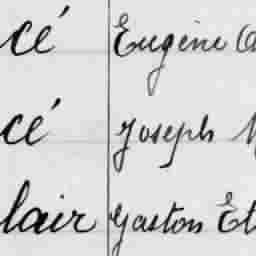 cé Eugène
cé Joseph
lair Gaston